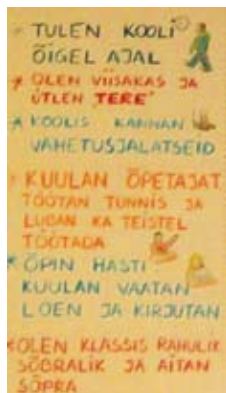 TULEN KOOLI
ÕIGEL AJAL
OLEN VIISAKAS JA
ÜTLEN "TERE"
KOOLIS KANNAN
VAHETUSJALATSEID
KUULAN ÕPETAJAT
TÖÖTAN TUNNIS JA
LUBAN KA TEISTEL
TÖÖTADA
ÕPIN HASTI
KUULAN VAATAN
LOEN JA KIRJUTAN
OLEN KLASSIS RAHULIK
SÕBRALIK JA AITAN
SÕPRA